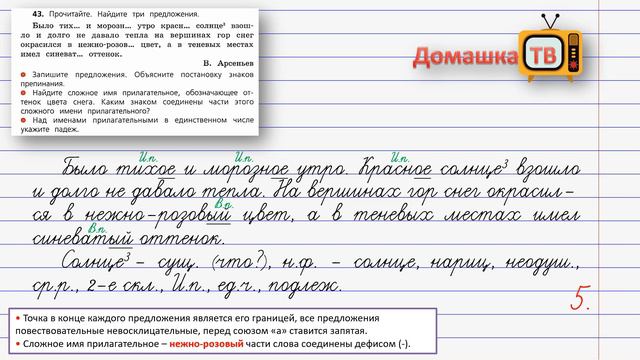 43. Прочитайте. Найдите три предложения.
Было тих... и морозн... утро красн... солнце³ взош-
ло и долго не давало тепла на вершинах гор снег
окрасился в нежно-розов... цвет, а в теневых местах
имел синеват... оттенок.
В. Арсеньев
Запишите предложения. Объясните постановку знаков
препинания.
Найдите сложное имя прилагательное, обозначающее от-
тенок цвета снега. Каким знаком соединены части этого
сложного имени прилагательного?
Над именами прилагательными в единственном числе
укажите падеж.
Домашка ТВ
И.п. И.п. И.п.
Было тихое и морозное утро. Красное солнце³ взошло
и долго не давало тепла. На вершинах гор снег окрасил-
В.п.
ся в нежно-розовый цвет, а в теневых местах имел
В.п.
синеватый оттенок.
Солнце³ – сущ. (что?), н.ф. – солнце, нариц., неодуш.,
ср.р., 2-е скл., И.п., ед.ч., подлеж.
5.
• Точка в конце каждого предложения является его границей, все предложения
повествовательные невосклицательные, перед союзом «а» ставится запятая.
• Сложное имя прилагательное – нежно-розовый части слова соединены дефисом (-).